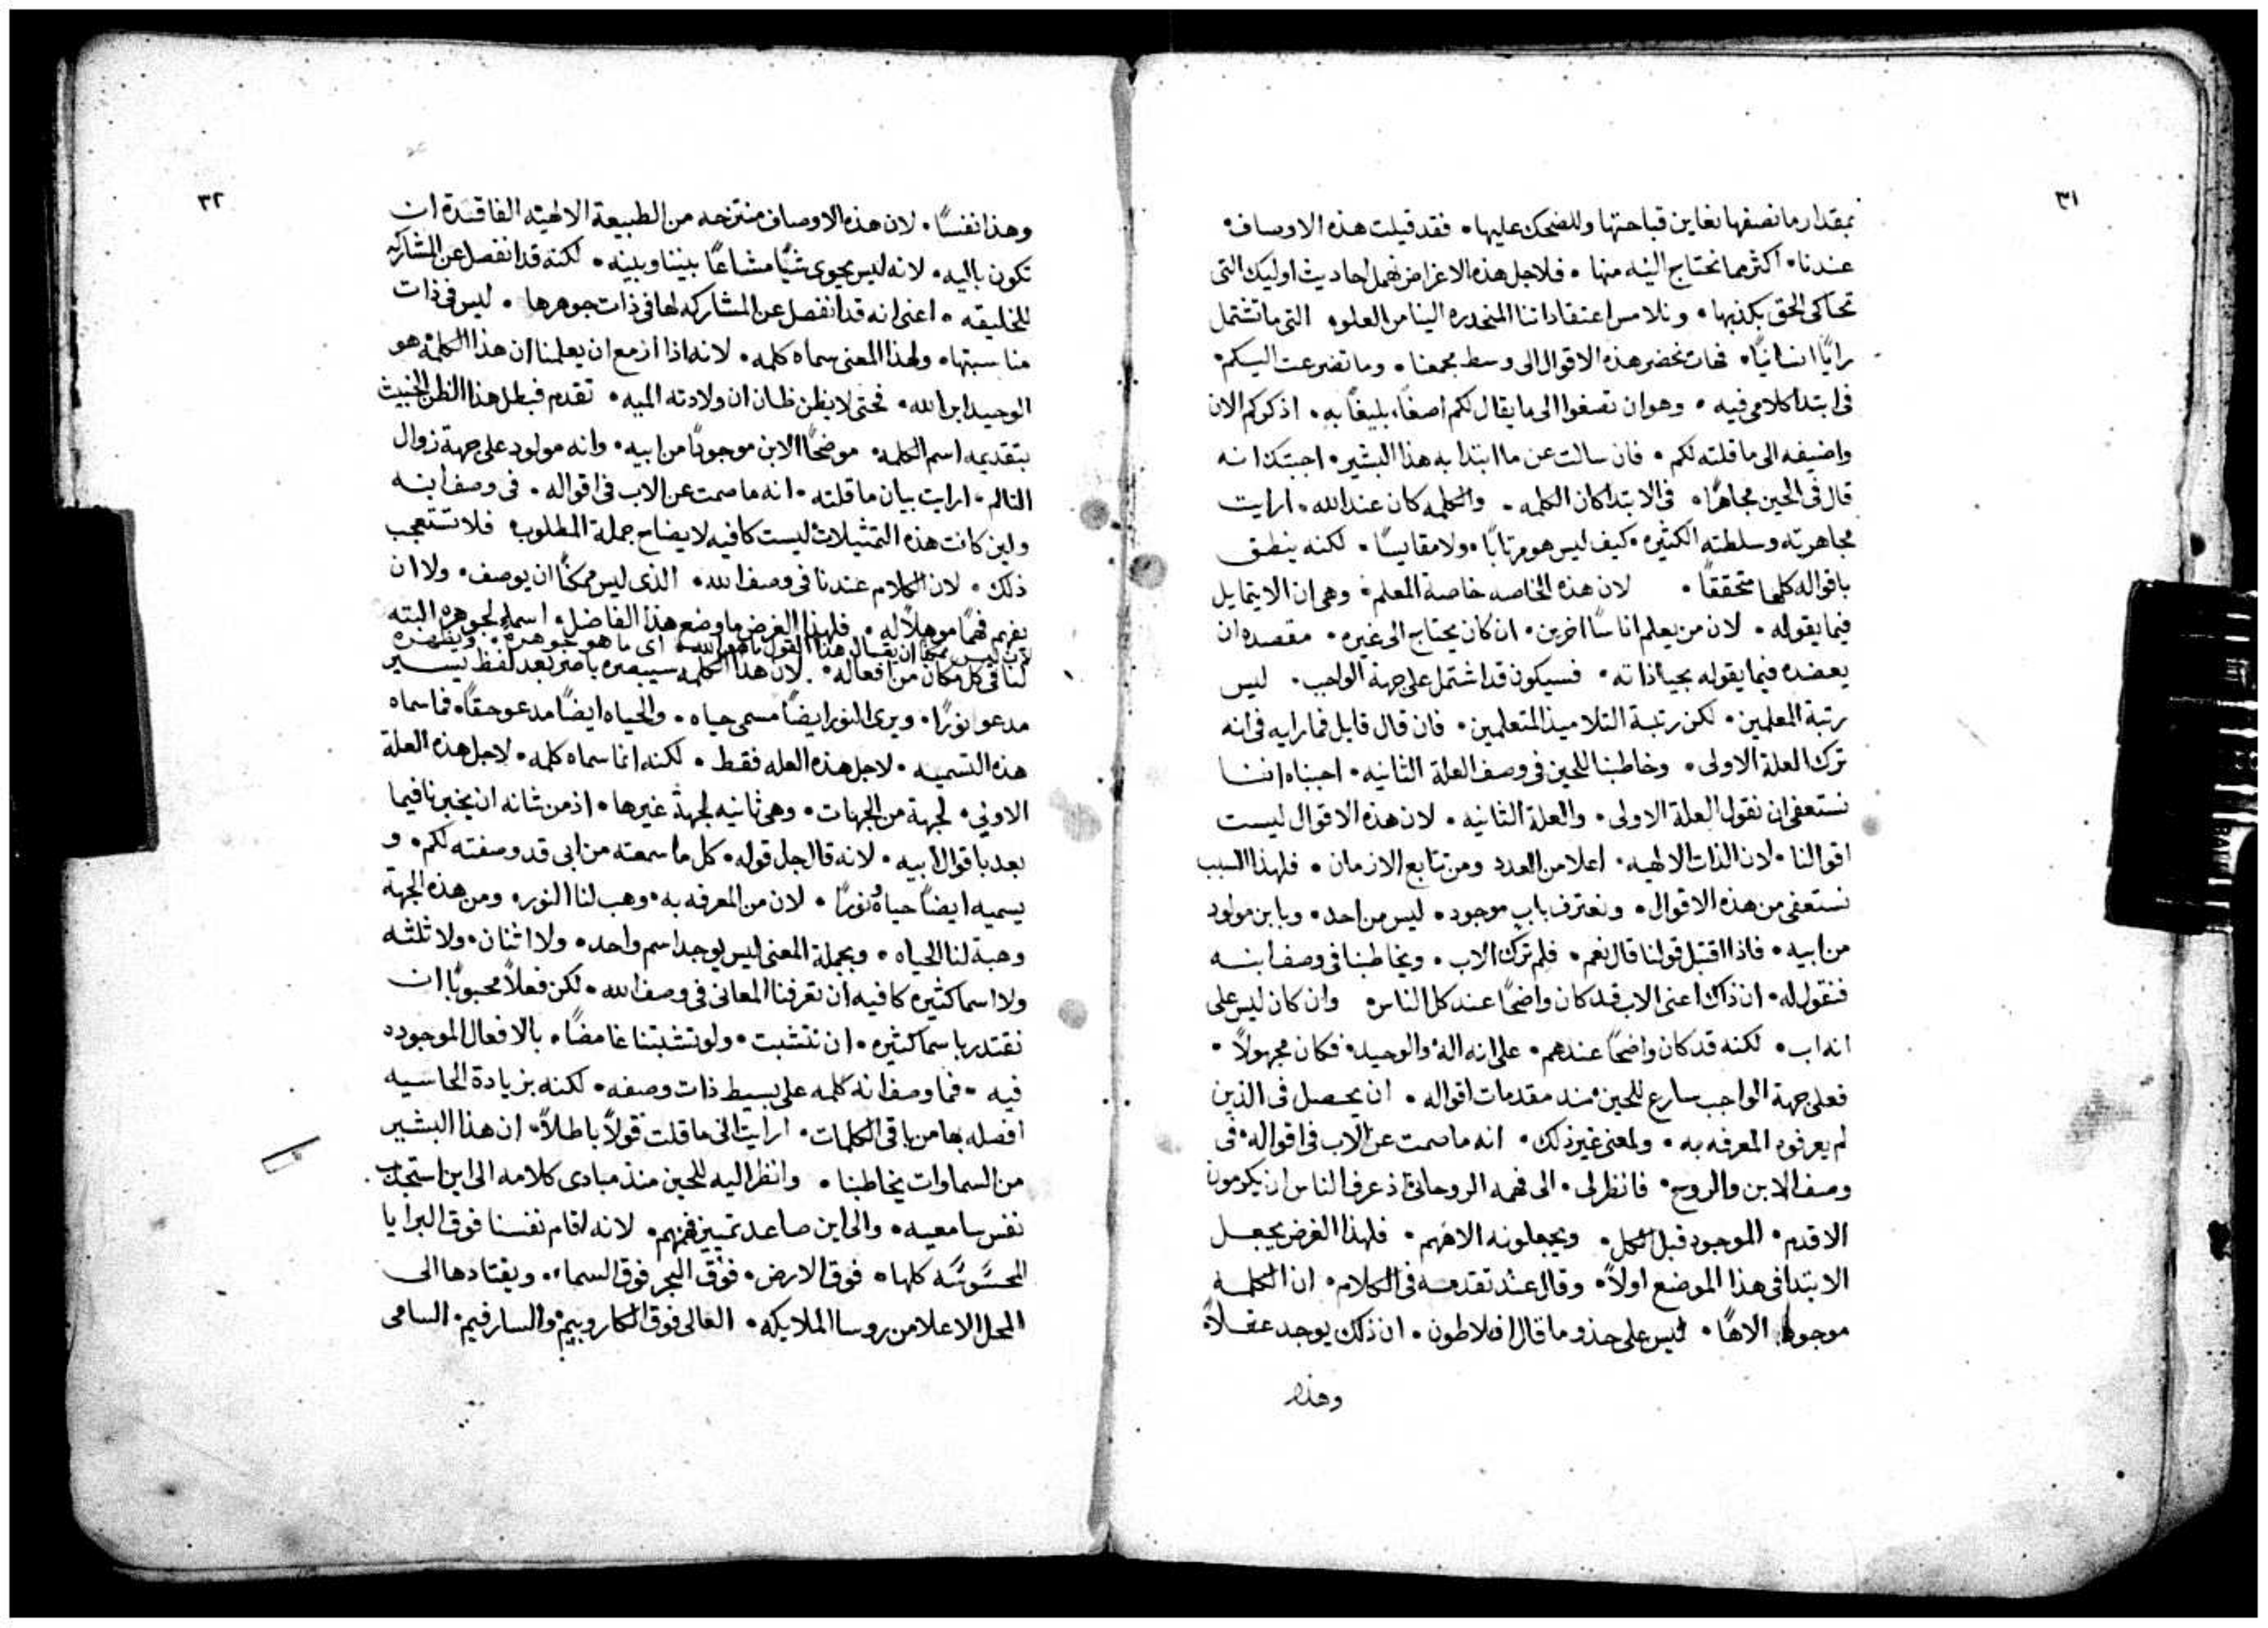 ٣١
بمقدار ما نصفها نعاين قباحتها وللضحك عليها • فقد قيلت هذه الاوصاف •
عندنا • اكثر مما نحتاج اليه منها • فلاجل هذه الاغراض نهمل احاديث اوليك التى
تحاكى الحق بكذبها • ونلامس اعتقاداتنا المنحدره الينا من العلو • التى ما تشتمل
رايًا انسانيًا • فهات نحضر هذه الاقوال الى وسط مجمعنا • وما تضرعت اليكم •
فى ابتدا كلامى فيه • وهو ان تصغوا الى ما يقال لكم اصغاء بليغًا به • اذكركم الان
واضيفه الى ما قلته لكم • فان سالت عن ما ابتدا به هذا البشير • اجبتك انه
قال فى الحين مجاهرًا • فى الابتدا كان الكلمه • والكلمه كان عند الله • ارايت
مجاهرته وسلطته الكثيره • كيف ليس هو مرتابًا • ولا مقايسًا • لكنه ينطق
باقواله كلها متحققًا • لان هذه الخاصه خاصة المعلم • وهى ان لا يتمايل
فيما يقوله • لان من يعلم اناسًا اخرين • ان كان يحتاج الى غيره • مقصده ان
يعضده فيما يقوله بحياذاته • فسيكون قد اشتمل على جهة الواجب • ليس
رتبة المعلمين • لكن رتبة التلاميذ المتعلمين • فان قال قايل فما رايه فى انه
ترك العلة الاولى • وخاطبنا للحين فى وصف العلة الثانيه • اجبناه اننا
نستعفى ان نقول العلة الاولى • والعلة الثانيه • لان هذه الاقوال ليست
اقوالنا • لان الذات الالهيه • اعلا من العدد ومن تتابع الازمان • فلهذا السبب
نستعفى من هذه الاقوال • ونعترف باب موجود • ليس من احد • وبابن مولود
من ابيه • فاذا اقتبل قولنا قال نعم • فلم ترك الاب • ويخاطبنا فى وصف ابنه
فنقول له • ان ذاك اعنى الاب قد كان واضحًا عند كل الناس • وان كان ليس على
انه اب • لكنه قد كان واضحًا عندهم • على انه اله • والوحيد • فكان مجهولًا •
فعلى جهة الواجب سارع للحين • مند مقدمات اقواله • ان يحصل فى الذين
لم يعرفوه المعرفه به • ولمعنى غير ذلك • انه ما صمت عن الاب فى اقواله • فى
وصف الابن والروح • فانظر لى • الى فهمه الروحانى • اذ عرف الناس ان يكرمون
الاقدم • الموجود قبل الكل • ويجعلونه الافهم • فلهذا الغرض يجعل
الابتدا فى هذا الموضع اولًا • وقال عند تقدمه فى الكلام • ان الكلمه
موجودا الاهًا • ليس على حذو ما قال افلاطون • ان ذلك يوجد عقلًا •
وهذا
٣٢
وهذا نفسًا • لان هذه الاوصاف منتزحه من الطبيعة الالهيه الفاقدة ان
تكون باليه • لانه ليس يحوى شيًا مشاعًا بيننا وبينه • لكنه قد انفصل عن المشاركه
للخليقه • اعنى انه قد انفصل عن المشاركه لها فى ذات جوهرها • ليس فى ذات
مناسبتها • ولهذا المعنى سماه كلمه • لانه اذا ازمع ان يعلمنا ان هذا الكلمه هو
الوحيد ابن الله • فحتى لا يظن ظان ان ولادته الميه • تقدم فبطل هذا الظن الخبيث
بتقديمه اسم الكلمه • موضحًا الابن موجودًا من ابيه • وانه مولود على جهة زوال
التالم • ارايت بيان ما قلته • انه ما صمت عن الاب فى اقواله • فى وصف ابنه
ولين كانت هذه التمثيلات ليست كافيه لايضاح جملة المطلوب • فلا تستعجب
ذلك • لان الكلام عندنا فى وصف الله • الذى ليس ممكنًا ان يوصف • ولا ان
يفهم فهمًا موهلًا له • فلهذا الغرض ما وضع هذا الفاضل • اسمًا لجوهره البته
لان ليس ممكنًا ان يقال هذا القول ما هو الله • اى ما هو بجوهره • ويظهره
لنا فى كل مكان من افعاله • لان هذا الكلمه سيبصره باصر بعد لفظ يسير
مدعو نورًا • ويرى النور ايضًا مسمى حياه • والحياه ايضًا مدعو حقًا • فما سماه
هذه التسميه • لاجل هذه العله فقط • لكنه انما سماه كلمه • لاجل هذه العلة
الاولى • لجهة من الجهات • وهى ثانيه لجهة غيرها • اذ من شانه ان يخبرنا فيما
بعد باقوال ابيه • لانه قال جل قوله • كل ما سمعته من ابى قد وصفته لكم • و
يسميه ايضًا حياة ونورًا • لان من المعرفه به • وهب لنا النور • ومن هذه الجهة
وهبة لنا الحياه • وبجملة المعنى ليس يوجد اسم واحد • ولا اثنان • ولا ثلثه
ولا اسما كثيره كافيه ان تعرفنا المعانى فى وصف الله • لكن فعلًا محبوبًا ان
نقتدر باسما كثيره • ان نتشبت • ولو تشبتنا غامضًا • بالافعال الموجوده
فيه • فما وصف انه كلمه على بسيط ذات وصفه • لكنه بزيادة الحاسيه
افصله بها من باقى الكلمات • ارايت انى ما قلت قولًا باطلًا • ان هذا البشير
من السماوات يخاطبنا • وانظر اليه للحين منذ مبادى كلامه الى اين استجذب
نفس سامعيه • والى اين صاعد تمييز فهمهم • لانه اقام نفسنا فوق البرايا
المحسوسه كلها • فوق الارض • فوق البحر فوق السماء • ويقتادها الى
المحل الاعلا من روسا الملايكه • العالى فوق الكاروبيم • والسارفيم • السامى